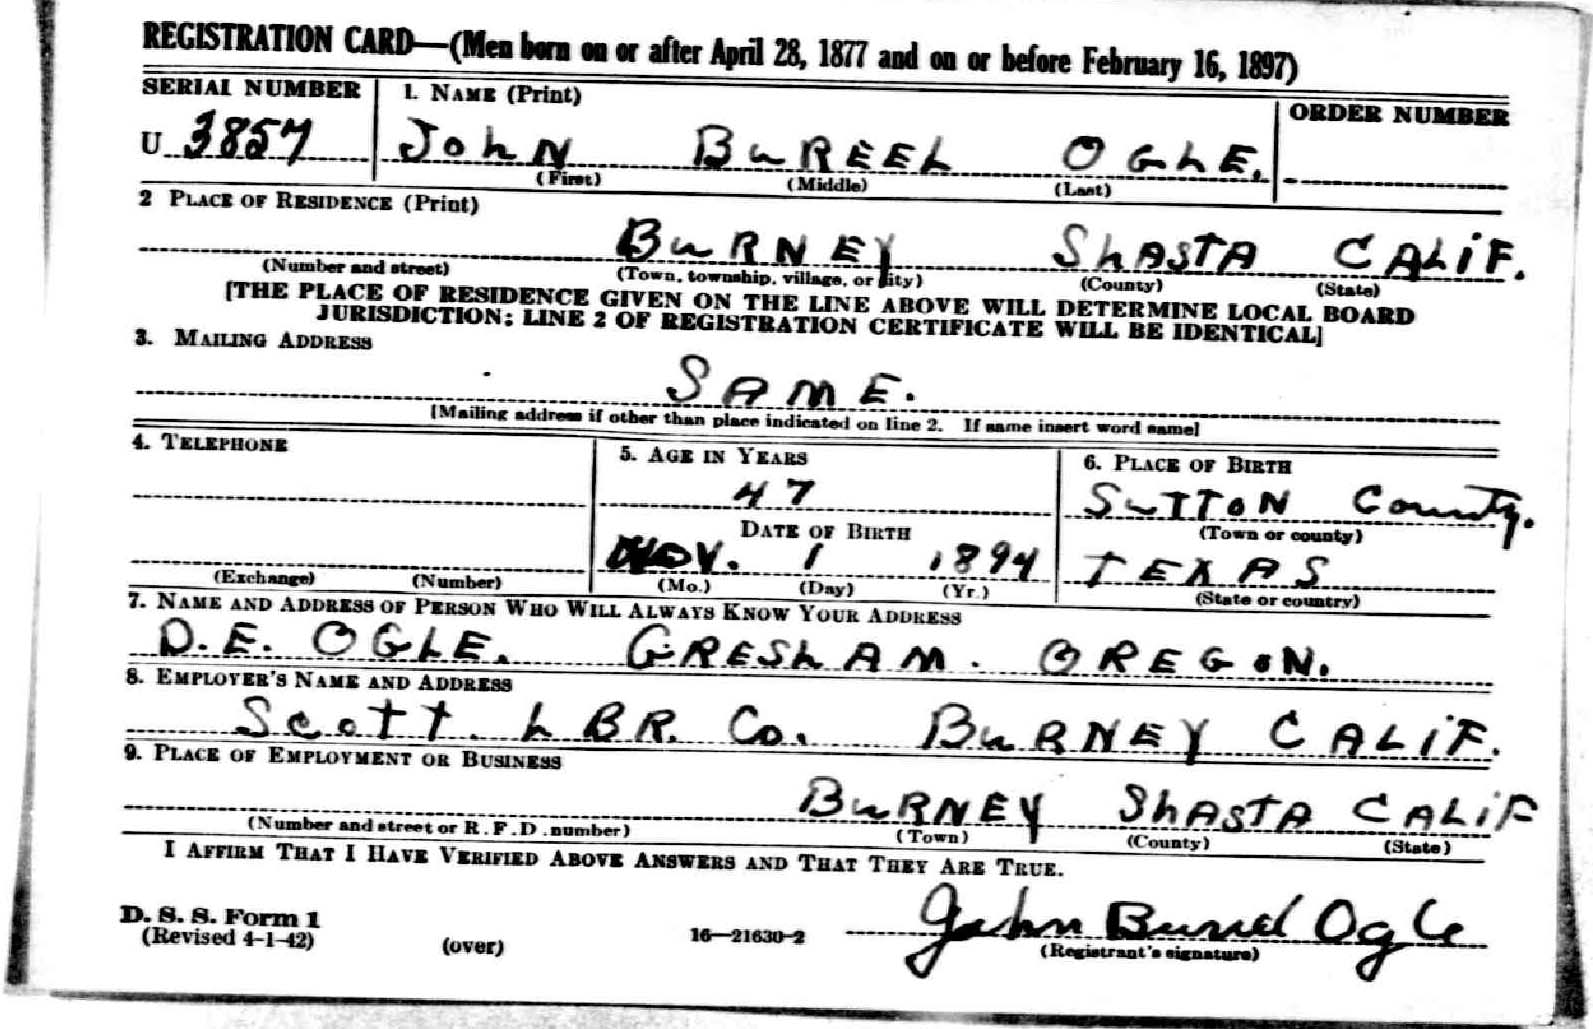 REGISTRATION CARD—(Men born on or after April 28, 1877 and on or before February 16, 1897)
SERIAL NUMBER 1. NAME (Print) ORDER NUMBER
U 3857 JOHN BUREEL OGLE.
(First) (Middle) (Last)
2 PLACE OF RESIDENCE (Print)
BURNEY SHASTA CALIF.
(Number and street) (Town, township, village, or city) (County) (State)
[THE PLACE OF RESIDENCE GIVEN ON THE LINE ABOVE WILL DETERMINE LOCAL BOARD
JURISDICTION; LINE 2 OF REGISTRATION CERTIFICATE WILL BE IDENTICAL]
3. MAILING ADDRESS
SAME.
[Mailing address if other than place indicated on line 2. If same insert word same]
4. TELEPHONE 5. AGE IN YEARS 6. PLACE OF BIRTH
47 SUTTON County.
DATE OF BIRTH (Town or county)
NOV. 1 1894 TEXAS
(Exchange) (Number) (Mo.) (Day) (Yr.) (State or country)
7. NAME AND ADDRESS OF PERSON WHO WILL ALWAYS KNOW YOUR ADDRESS
D.E. OGLE. GRESHAM. OREGON.
8. EMPLOYER'S NAME AND ADDRESS
Scott LBR. Co. BURNEY CALIF.
9. PLACE OF EMPLOYMENT OR BUSINESS
BURNEY SHASTA CALIF
(Number and street or R.F.D. number) (Town) (County) (State)
I AFFIRM THAT I HAVE VERIFIED ABOVE ANSWERS AND THAT THEY ARE TRUE.
D. S. S. Form 1
(Revised 4-1-42) (over) 16—21630-2 John Burrel Ogle
(Registrant's signature)